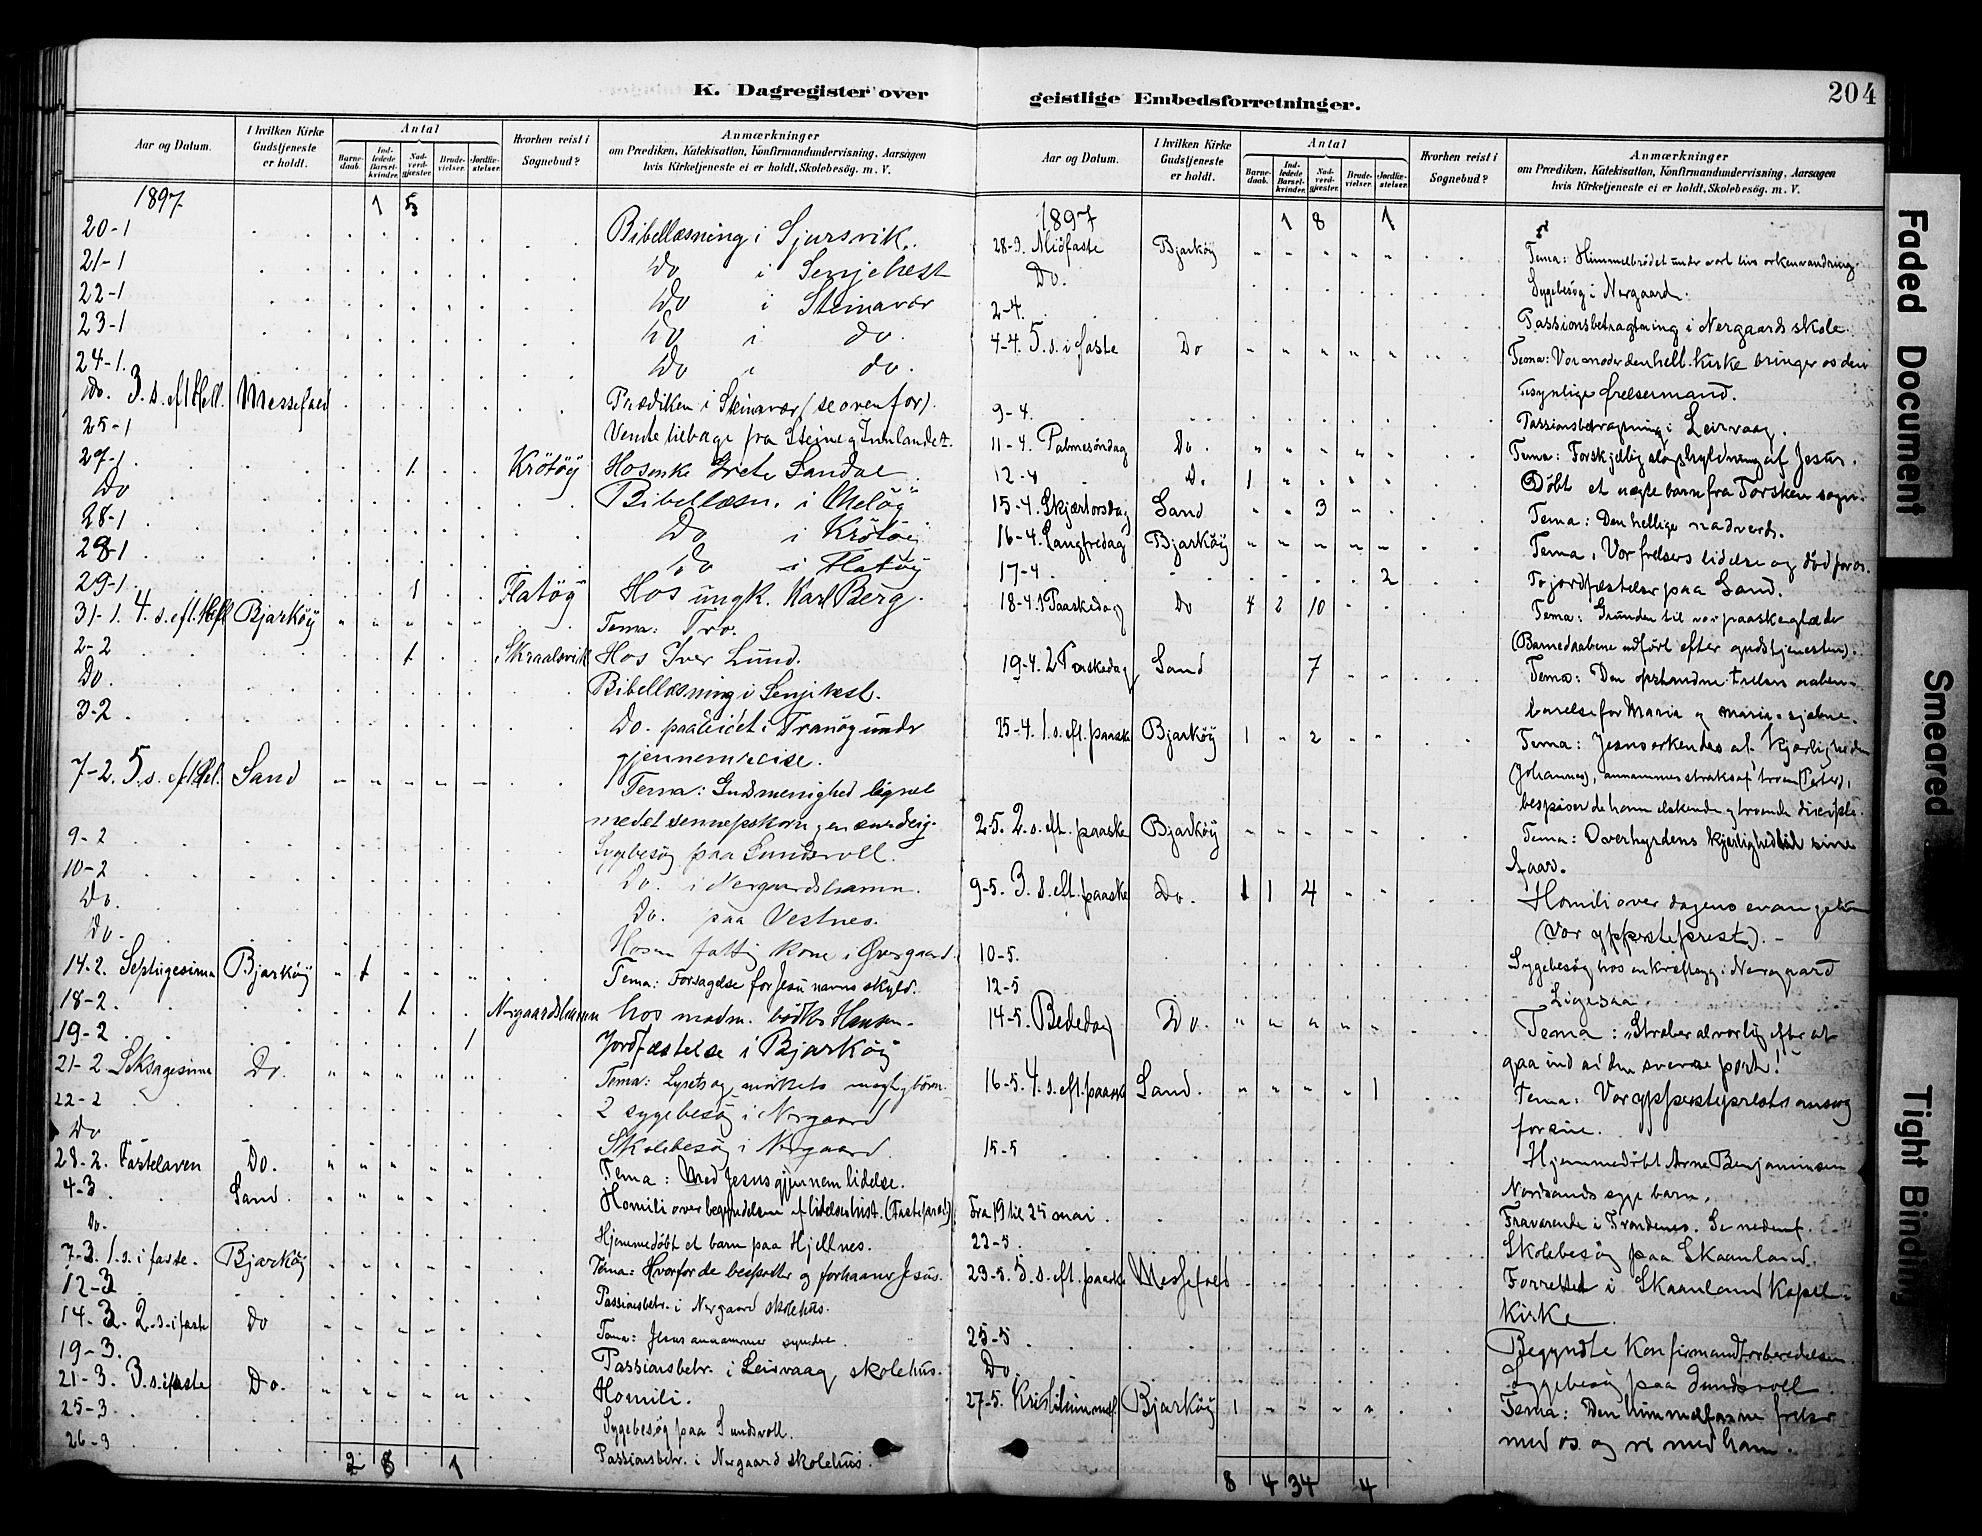 K. Dagregister over
geistlige Embedsforretninger.
204
Aar og Datum.
I hvilken Kirke Gudstjeneste er holdt.
Antal
Barnedaab.
Indledede Barselkvinder.
Nadverdgjester.
Brudevielser.
Jordfæstelser.
Hvorhen reist i Sognebud?
Anmærkninger
om Prædiken, Katekisation, Konfirmandundervisning, Aarsagen
hvis Kirketjeneste ei er holdt, Skolebesøg. m. V.
1897 1 5
20-1 Bibellæsning i Sjursvik.
21-1 Do i Senjehest
22-1 Do i Steinavær
23-1 Do i do.
24-1. Do i do.
Do. 3. s. eft Hell. Messefald Prædiken i Steinavær (se ovenfor).
25-1 Vendte tilbage fra Steine og Innlandet.
27-1 1 Krötöy Hos enke Grete Sandal
Do Bibellæsn. i Melöy
28-1 Do i Krötöy
28-1 Do i Flatöy
29-1 1 Flatöy Hos ungk. Karl Berg.
31-1. 4. s. eft. Hell Bjarköy Tema: Tro.
2-2 1 Skraalsvik Hos Iver Lund.
Do. Bibellæsning i Senjehest.
3-2 Do. paa i Tranöy under
gjennemreise.
7-2. 5. s. eft Hel. Sand Tema: Guds menighed lignet
med et sennepskorn og en surdeig.
9-2 Sygebesög paa Sundsvoll.
10-2 Do. i Nergaardshamn.
Do. Do. paa Vestnes.
Do. Hos en fattig kone i Övergaard.
14-2. Septugesima Bjarköy 1 Tema: Forsagelse for Jesu navns skyld.
18-2. 1 Nergaardshamn hos madm. Hansen.
19-2 1 Jordfæstelse i Bjarköy
21-2. Seksagesima Do. Tema: Lysets og mörkets magt
22-2 2 sygebesög i Nergaard
Do Skolebesög i Nergaard
28-2. Fastelaven Do. Tema: Med Jesus gjennem lidelse.
4-3 Sand. Homili over begyndelsen af lidelseshist. (Fastepræd.)
Do. Hjemmedöbt et barn paa Hjellnes.
7-3. 1. s. i faste. Bjarköy Tema: Hvorfor de bespotter og forhaaner Jesus.
12-3 Passionsbetr. i Nergaard skolehus.
14-3. 2. s. i faste Do Tema: Jesus annammer syndere.
19-3. Passionsbetr. i Leirvaag skolehus.
21-3. 3. s. i faste Do. Homili.
25-3 Sygebesög paa Sundsvoll.
26-3 Passionsbetr. i Nergaard skolehus.
2 8 1
Aar og Datum.
I hvilken Kirke Gudstjeneste er holdt.
Antal
Barnedaab.
Indledede Barselkvinder.
Nadverdgjester.
Brudevielser.
Jordfæstelser.
Hvorhen reist i Sognebud?
Anmærkninger
om Prædiken, Katekisation, Konfirmandundervisning, Aarsagen
hvis Kirketjeneste ei er holdt, Skolebesög. m. V.
1897 1 8 1
28-3. Midfaste Bjarköy Tema: Himmelbrödet under vort livs örkenvandring.
Do. Sygebesög i Nergaard.
2-4. Passionsbetragtning i Nergaards skole.
4-4. 5. s. i faste Do Tema: Vor moder den hell. kirke bringer os den
usynlige frelsermand.
9-4. Passionsbetragtning i Leirvaag.
11-4. Palmesöndag Do. Tema: Forskjellig slags hyldning af Jesus.
12-4 Do. 1 Döbt et uægte barn fra Torsken sogn.
15-4. Skjærtorsdag Sand 3 Tema: Den hellige nadverd.
16-4. Langfredag Bjarköy Tema: Vor frelsers lidelse og död for os.
17-4. 2 To jordfæstelser paa Sand.
18-4. 1 Paaskedag Do 4 2 10 Tema: Grunden til vor paaskeglæde
(Barnedaabene udfört efter gudstjenesten).
19-4. 2 Paaskedag Sand 7 Tema: Den opstandne frelsers aaben-
barelse for Maria og Maria-sjælene.
25-4. 1. s. eft. paaske Bjarköy 1 2 Tema: Jesus erkjendes af kjærligheden
(Johannes), annammes straks af troen (Peter),
bespiser de ham elskende og troende disciple.
2-5. 2. s. eft. paaske Bjarköy Tema: Overhyrdens kjærlighed til sine
faar.
9-5. 3. s. eft. paaske Do. 1 1 4 Homili over dagens evangelium
(Vor ypperstepræst).
10-5. Sygebesög hos en kræftsyg i Nergaard
12-5 Ligesaa.
14-5. Bededag Do. Tema: "Stræber alvorlig efter at
gaa ind ad den snevre port!"
16-5. 4. s. eft. paaske Sand. 1 Tema: Vor ypperstepræsts omsorg
for sine.
15-5 Hjemmedöbt Arne Benjaminsen
Nordsands syge barn.
Fra 19 til 25 mai. Fraværende i Trondenes. Se nedenf.
22-5 Skolebesög paa Skaanland.
23-5. 5. s. eft. paaske Messefald Forrettet i Skaanland Kapel-
kirke
25-5 Begyndte Konfirmandforberedelsen.
Do. Sygebesög paa Sundsvoll.
27-5. Kristi himmelf. Bjarköy 1 Tema: Den himmelfarne frelser
med os og vi med ham.
8 4 34 4
Faded Document
Smeared
Tight Binding